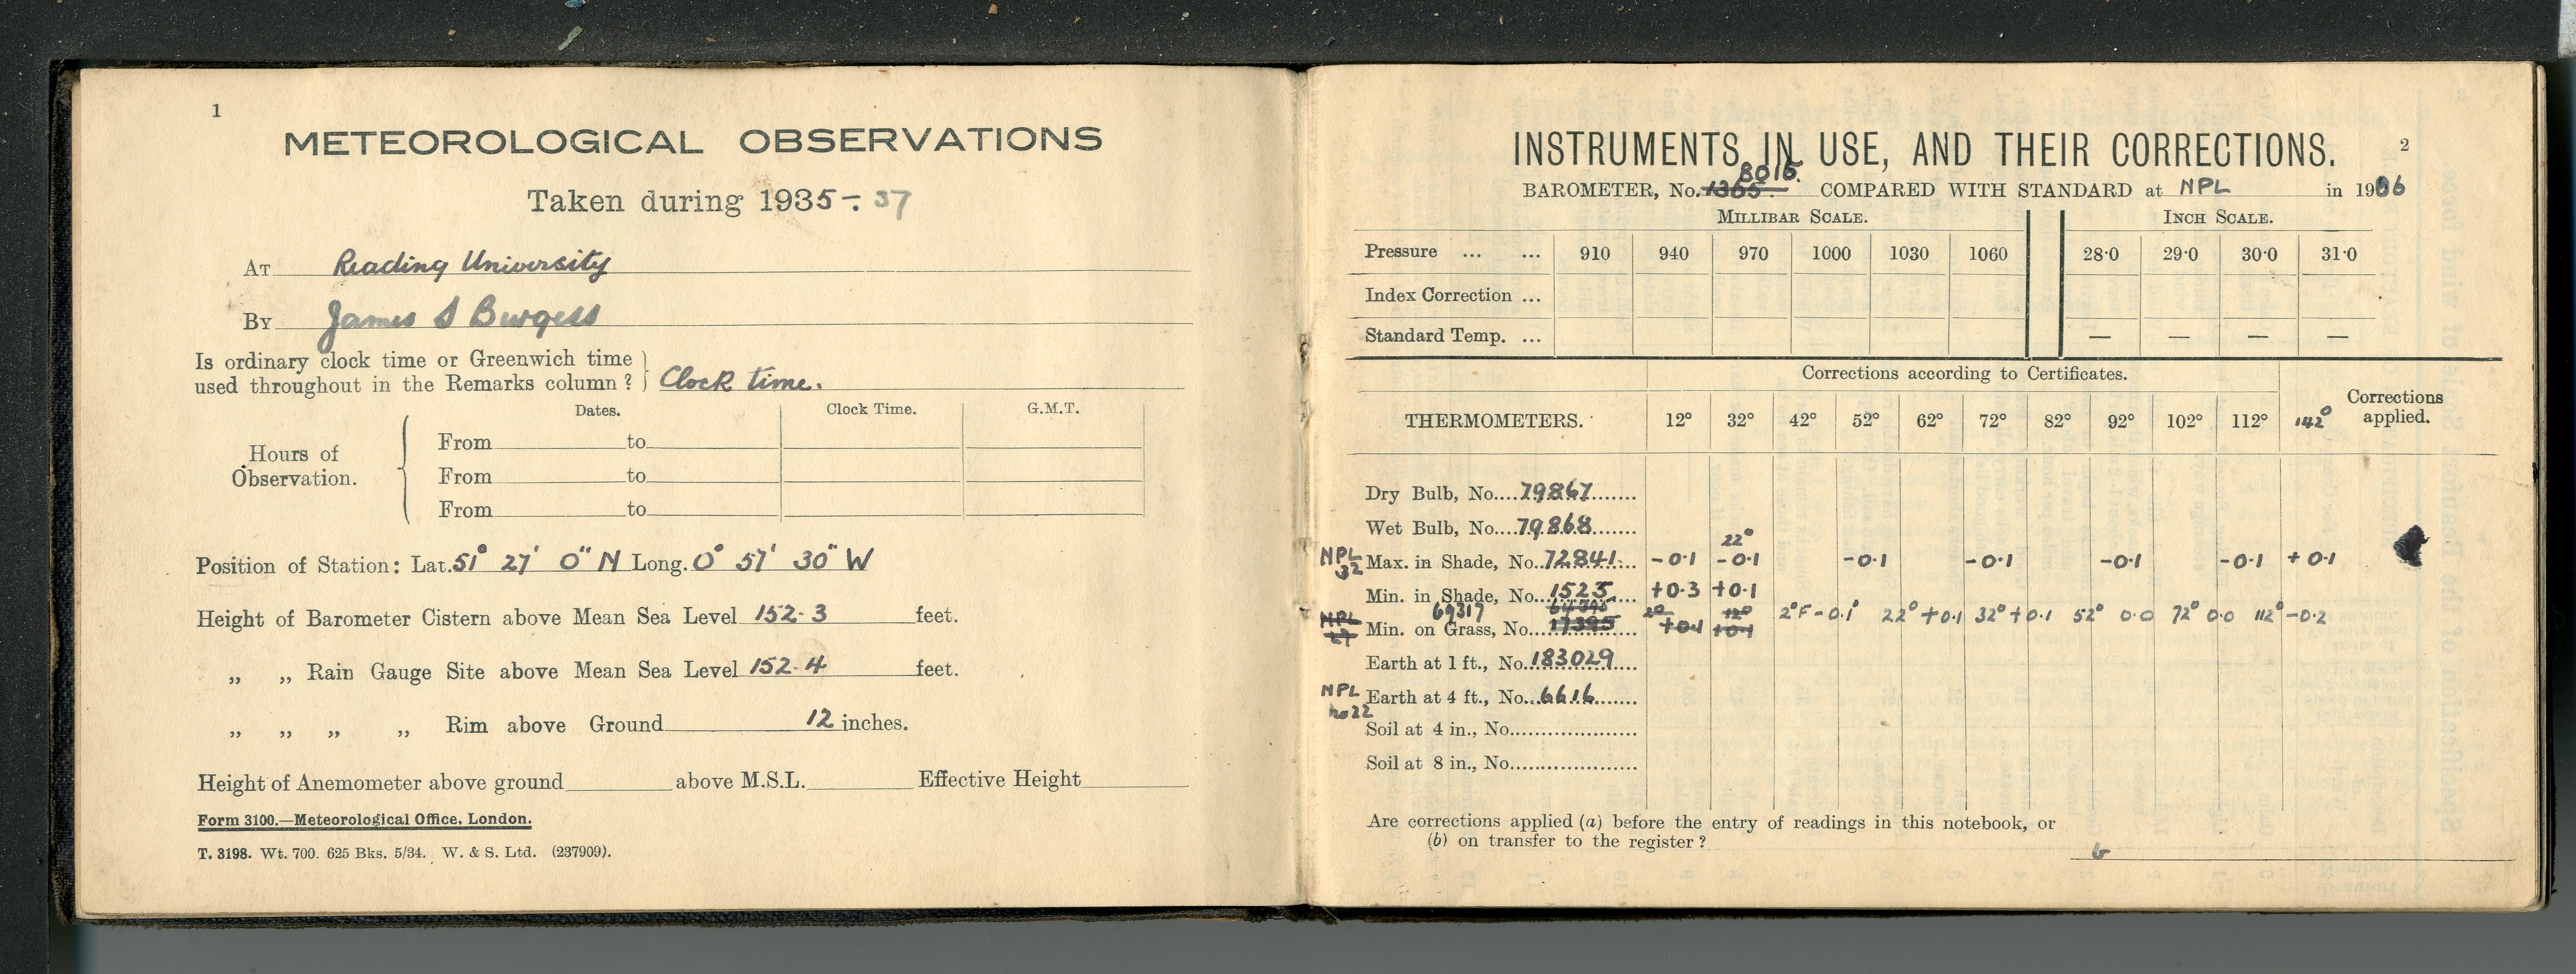 1
METEOROLOGICAL OBSERVATIONS
Taken during 1935-37
AT Reading University
BY James S Burgess
Is ordinary clock time or Greenwich time
used throughout in the Remarks column? } Clock time.
Dates. Clock Time. G.M.T.
Hours of Observation.
From to
From to
From to
Position of Station: Lat. 51° 27' 0" N Long. 0° 57' 30" W
Height of Barometer Cistern above Mean Sea Level 152.3 feet.
„ „ Rain Gauge Site above Mean Sea Level 152.4 feet.
„ „ „ „ Rim above Ground 12 inches.
Height of Anemometer above ground above M.S.L. Effective Height
Form 3100.—Meteorological Office, London.
T. 3198. Wt. 700. 625 Bks. 5/34. W. & S. Ltd. (237909).
2
INSTRUMENTS IN USE, AND THEIR CORRECTIONS.
8016.
BAROMETER, No. 1365. COMPARED WITH STANDARD at NPL in 1936
MILLIBAR SCALE. INCH SCALE.
Pressure ... ... 910 940 970 1000 1030 1060 28·0 29·0 30·0 31·0
Index Correction ...
Standard Temp. ... — — — —
Corrections according to Certificates.
THERMOMETERS. 12° 32° 42° 52° 62° 72° 82° 92° 102° 112° 142° Corrections applied.
Dry Bulb, No. 79867
Wet Bulb, No. 79868
22°
NPL 32 Max. in Shade, No. 72841 -0.1 -0.1 -0.1 -0.1 -0.1 -0.1 +0.1
Min. in Shade, No. 1525 +0.3 +0.1
69317 2° 12° 2°F -0.1° 22° +0.1 32° +0.1 52° 0.0 72° 0.0 112° -0.2
NPL 27 Min. on Grass, No. 17395 +0.1 +0.1
Earth at 1 ft., No. 183029
NPL no 22 Earth at 4 ft., No. 6616
Soil at 4 in., No.
Soil at 8 in., No.
Are corrections applied (a) before the entry of readings in this notebook, or
(b) on transfer to the register? b